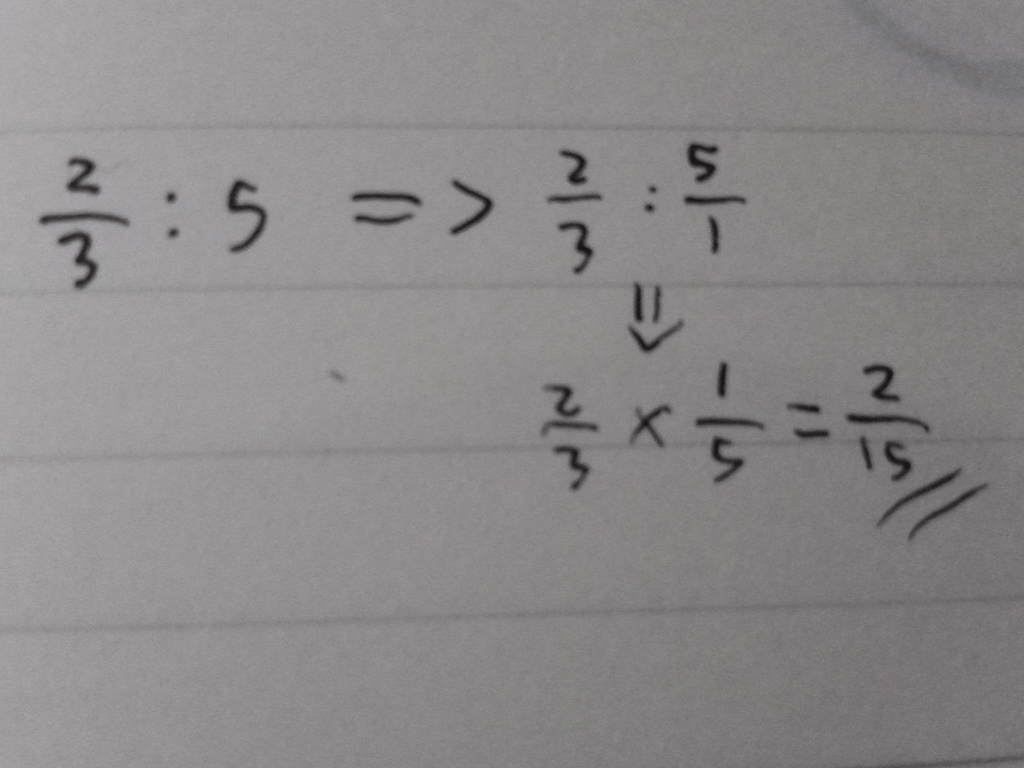 2/3 : 5 => 2/3 : 5/1
⇓
2/3 × 1/5 = 2/15 //